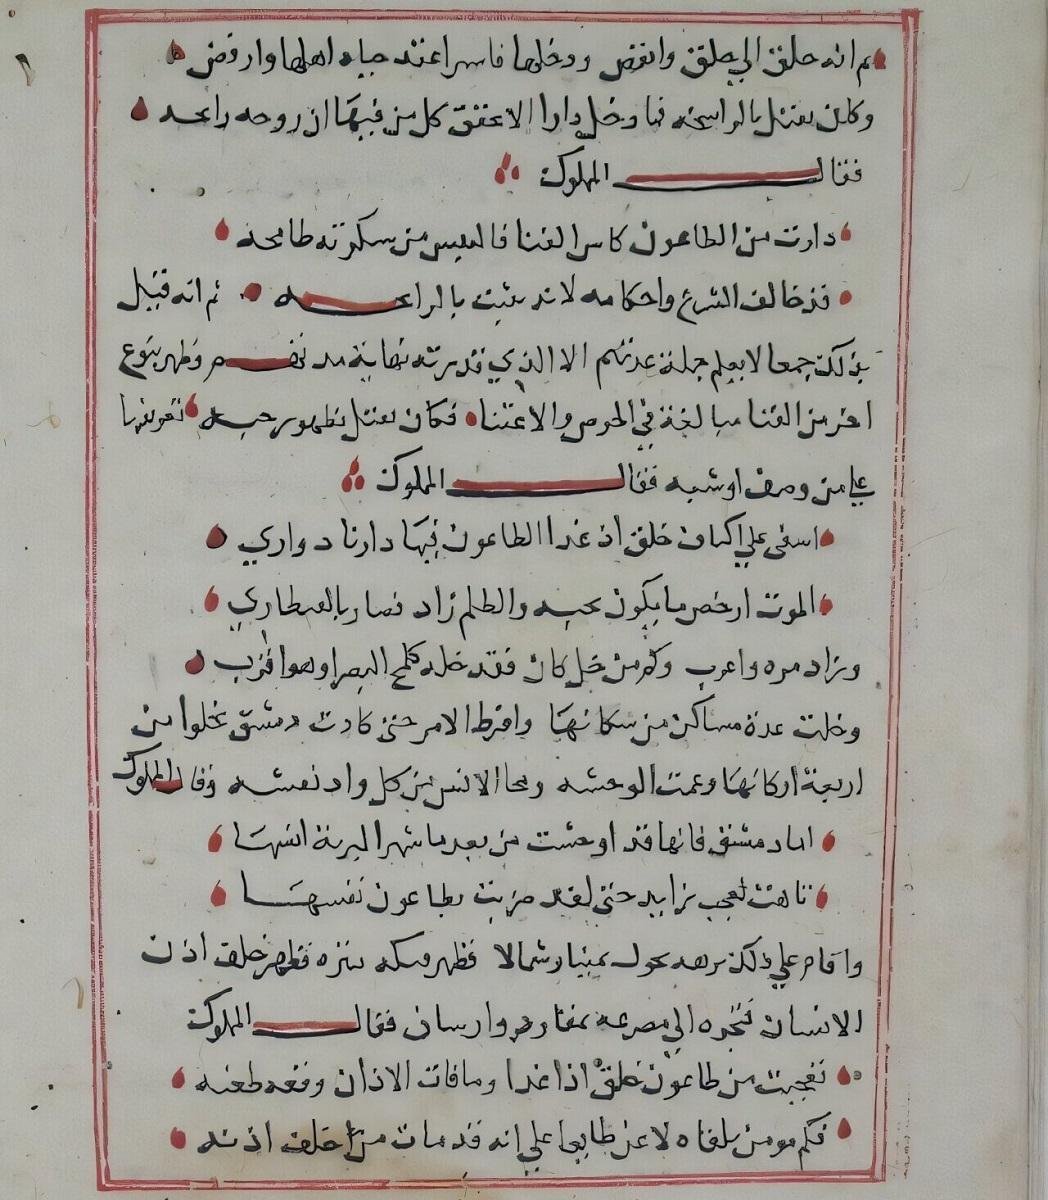 ثم انه حلق الي جلق وانقض ودخلها فاسرا عنده جياد اهلها وارفض
وكان يقتل بالرايحه فما دخل دارا الا تحقق كل من فيها ان روحه رايحه
فقال المملوك
دارت من الطاعون كاس الفنا فالنفس من سكرته طافحه
قد خالف الشرع واحكامه لانه يثبت بالرايحه ثم انه قتل
بذلك جمعا لا يعلم جملة عدتهم الا الذي قدر ته وظهر بنوع
اخر من الفنا مبالغة في الحرص والاعتنا فكان يقتل بظهور حبه
علي من وصف او شبه فقال المملوك
اسفى علي اكناف جلق اذ غدا الطاعون فيها دارنا دواري
الموت ارخص ما يكون بحبه والظلم زاد فصار بالقنطاري
وزاد مره واعرب وكم من خل كان فقده خله كلمح البصر او هو اقرب
وخلت عدة مساكن من سكانها وافرط الامر حتى كادت دمشق تخلوا من
اربعة اركانها وعمت الوحشه ومحا الانس من كل واد نعشه وقال المملوك
اما دمشق فانها قد اوحشت من بعد ما شهد البرية انسها
تاهت بعجب زايد حتى لقد ضربت بطاعون نفسها
واقام علي ذلك برهه يحول يمينا وشمالا فظهر خلف اذن
الانسان فتجره الي مصرعه وارسان فقال المملوك
تعجبت من طاعون جلق اذا غدا وما فاتت الاذان وقعه طعنه
فكم مومن يلقاه لاعن طايعا علي انه قد مات من خلف اذنه